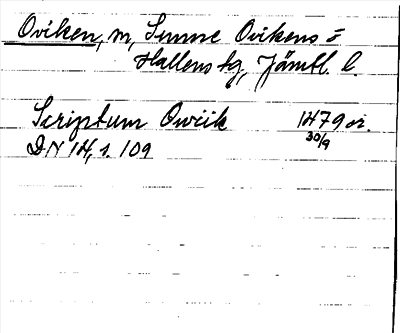 Oviken, m, Sunne Ovikens o
Hallens tg, Jämtl. l.
Scriptum Owiik 1479 or.
30/9
DN 14, s. 109